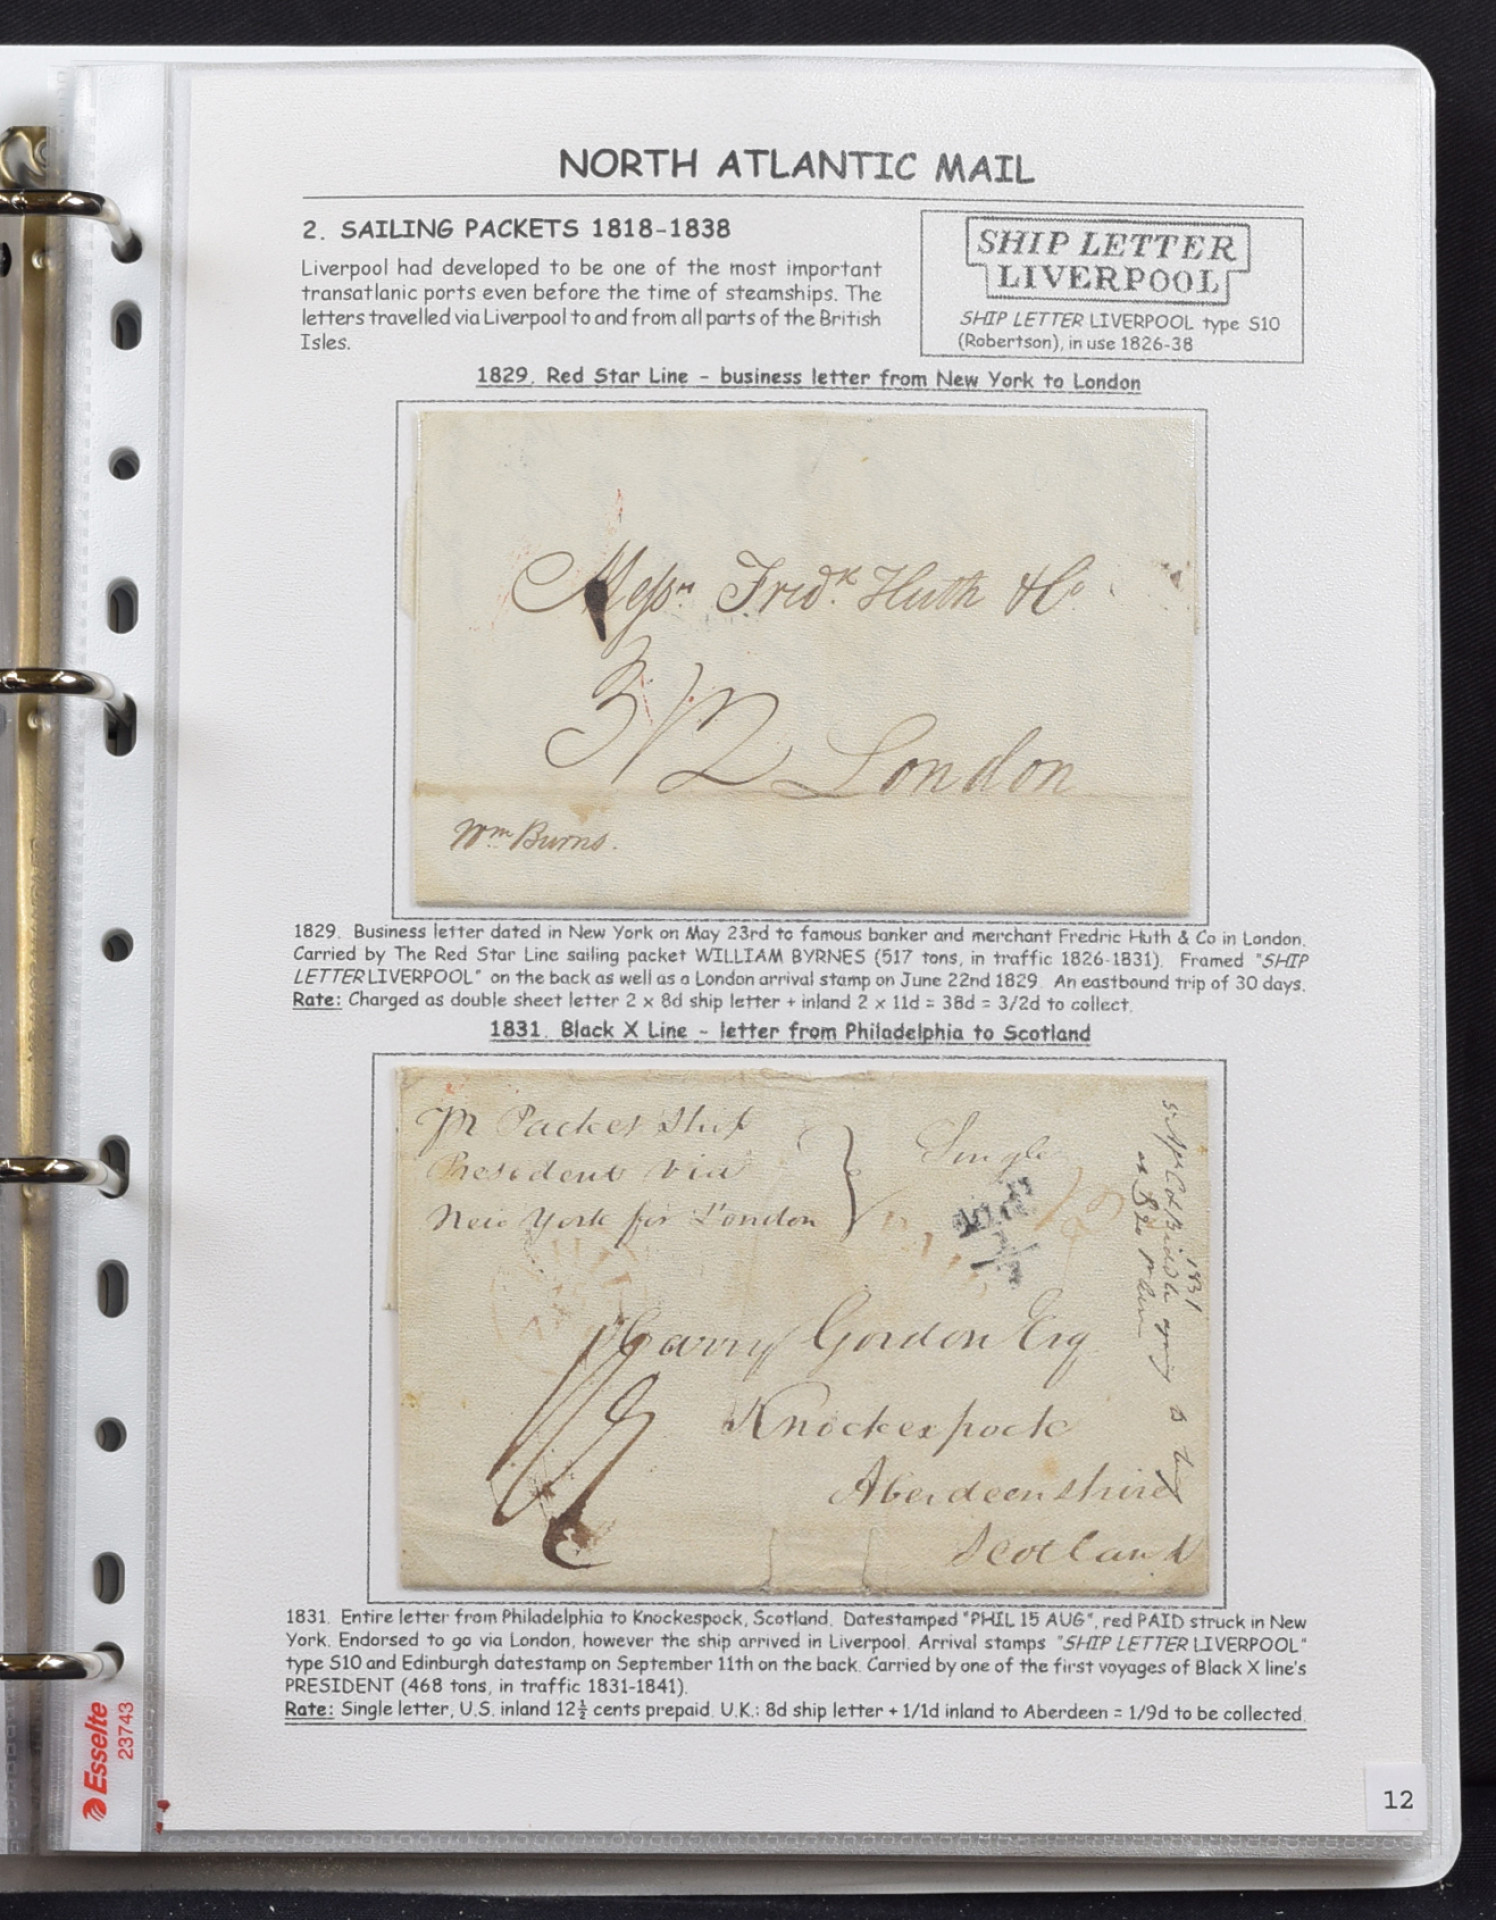 NORTH ATLANTIC MAIL
2. SAILING PACKETS 1818-1838
Liverpool had developed to be one of the most important
transatlanic ports even before the time of steamships. The
letters travelled via Liverpool to and from all parts of the British
Isles.
SHIP LETTER
LIVERPOOL
SHIP LETTER LIVERPOOL type S10
(Robertson), in use 1826-38
1829. Red Star Line - business letter from New York to London
Messrs Fredk Huth & Co
3/2 London
Wm Burns.
1829. Business letter dated in New York on May 23rd to famous banker and merchant Fredric Huth & Co in London.
Carried by The Red Star Line sailing packet WILLIAM BYRNES (517 tons, in traffic 1826-1831). Framed "SHIP
LETTER LIVERPOOL" on the back as well as a London arrival stamp on June 22nd 1829. An eastbound trip of 30 days.
Rate: Charged as double sheet letter 2 x 8d ship letter + inland 2 x 11d = 38d = 3/2d to collect.
1831. Black X Line - letter from Philadelphia to Scotland
Pr Packet Ship
President via
New York for London
Single
1831
Harry Gordon Esq
Knockespock
Aberdeenshire
Scotland
1831. Entire letter from Philadelphia to Knockespock, Scotland. Datestamped "PHIL 15 AUG", red PAID struck in New
York. Endorsed to go via London, however the ship arrived in Liverpool. Arrival stamps "SHIP LETTER LIVERPOOL"
type S10 and Edinburgh datestamp on September 11th on the back. Carried by one of the first voyages of Black X line's
PRESIDENT (468 tons, in traffic 1831-1841).
Rate: Single letter, U.S. inland 12½ cents prepaid. U.K.: 8d ship letter + 1/1d inland to Aberdeen = 1/9d to be collected.
Esselte
23743
12